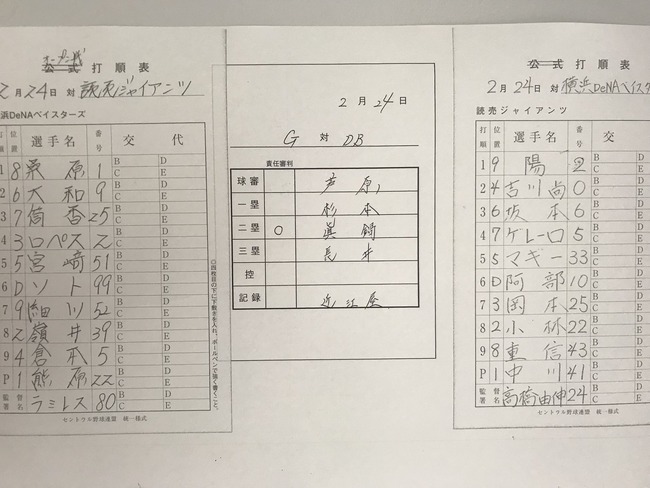 オープン戦
公式打順表
2月24日 対 読売ジャイアンツ
浜DeNAベイスターズ
打順 位置 選手名 番号 交代
1 8 桑原 1 B D C E
2 6 大和 9 B D C E
3 7 筒香 25 B D C E
4 3 ロペス 2 B D C E
5 5 宮﨑 51 B D C E
6 D ソト 99 B D C E
7 9 細川 52 B D C E
8 2 嶺井 39 B D C E
9 4 倉本 5 B D C E
P 1 熊原 22 B D C E
監督署名 ラミレス 80 B D C E
セントラル野球連盟 統一様式
○四枚目の下に下敷きを入れ、ボールペンで強く書くこと。
2月24日
G 対 DB
責任審判
球審 芦原
一塁 杉本
二塁 ○ 眞鍋
三塁 荒井
控
記録 近江屋
公式打順表
2月24日 対 横浜DeNAベイスター
読売ジャイアンツ
打順 位置 選手名 番号 交
1 9 陽 2 B D C E
2 4 吉川尚 0 B D C E
3 6 坂本 6 B D C E
4 7 ゲレーロ 5 B D C E
5 5 マギー 33 B D C E
6 D 阿部 10 B D C E
7 3 岡本 25 B D C E
8 2 小林 22 B D C E
9 8 重信 43 B D C E
P 1 中川 41 B D C E
監督署名 高橋由伸 24 B D C E
セントラル野球連盟 統一様式